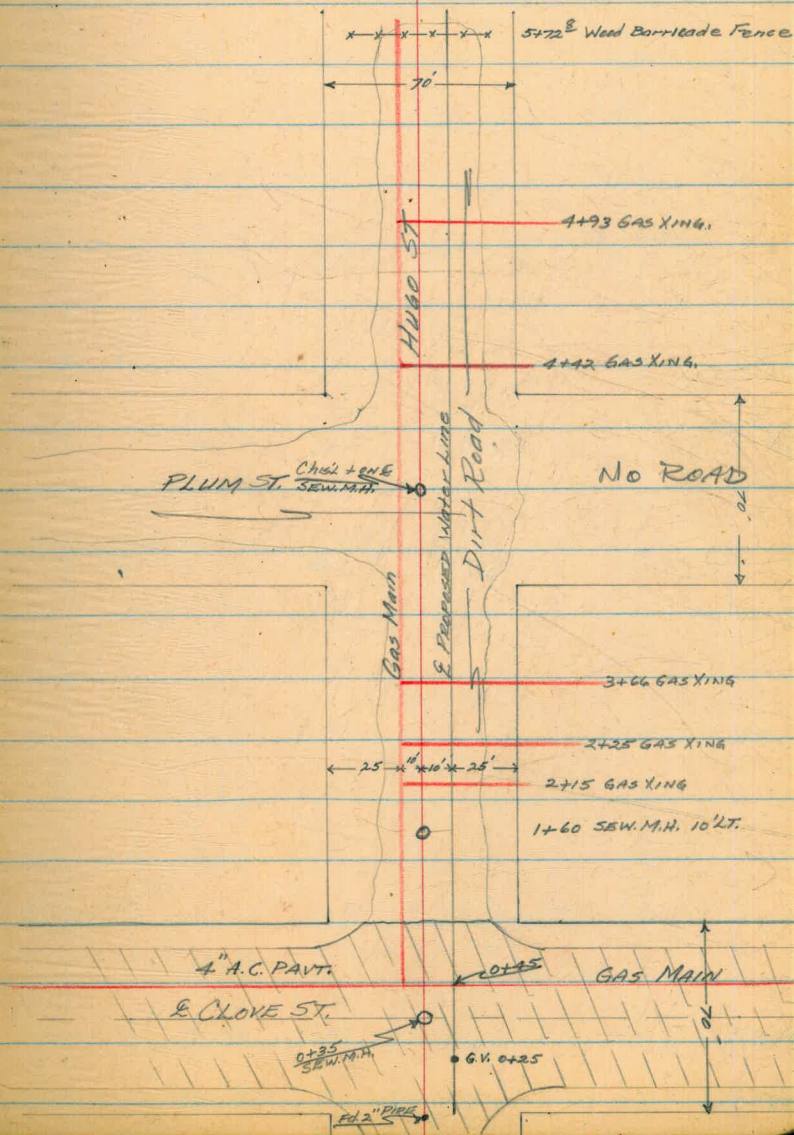 5+72⁸ Wood Barricade Fence
70'
4+93 GAS XING.
HUGO ST.
4+42 GAS XING.
PLUM ST.
SEW.M.H.
NO ROAD
70'
℄ PROPOSED Water Line
Dirt Road
Gas Main
3+66 GAS XING
2+25 GAS XING
25 10' 10' 25'
2+15 GAS XING
1+60 SEW.M.H. 10'LT.
4" A.C. PAVT.
0+45
GAS MAIN
℄ CLOVE ST.
70'
0+35
SEW.M.H.
G.V. 0+25
Fd. 2" PIPE